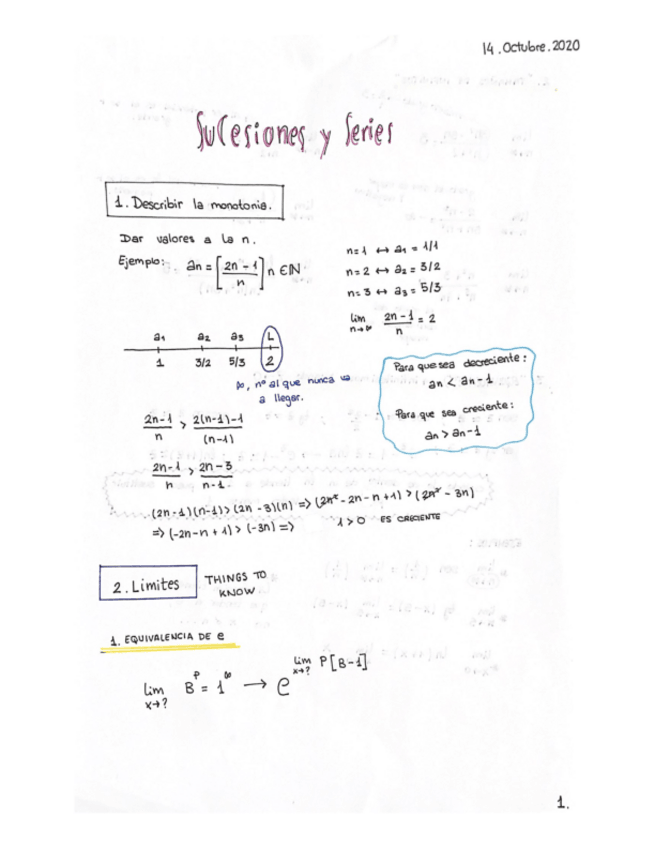 14.Octubre.2020
Sucesiones y Series
1. Describir la monotonia.
Dar valores a la n.
Ejemplo: an = [2n-1/n] n ∈ ℕ
n=1 ↔ a₁ = 1/1
n=2 ↔ a₂ = 3/2
n=3 ↔ a₃ = 5/3
lim n→∞ 2n-1/n = 2
a₁ a₂ a₃ L
1 3/2 5/3 2
nº al que nunca va
a llegar.
Para que sea decreciente:
an < an-1
Para que sea creciente:
an > an-1
2n-1/n > 2(n-1)-1/(n-1)
2n-1/n > 2n-3/n-1
(2n-1)(n-1) > (2n-3)(n) => (2n²-2n-n+1) > (2n²-3n)
=> (-2n-n+1) > (-3n) => 1>0 ES CRECIENTE
2. Limites THINGS TO
KNOW
1. EQUIVALENCIA DE e
lim x→? B^P = 1^∞ → e^lim x→? P[B-1]
1.